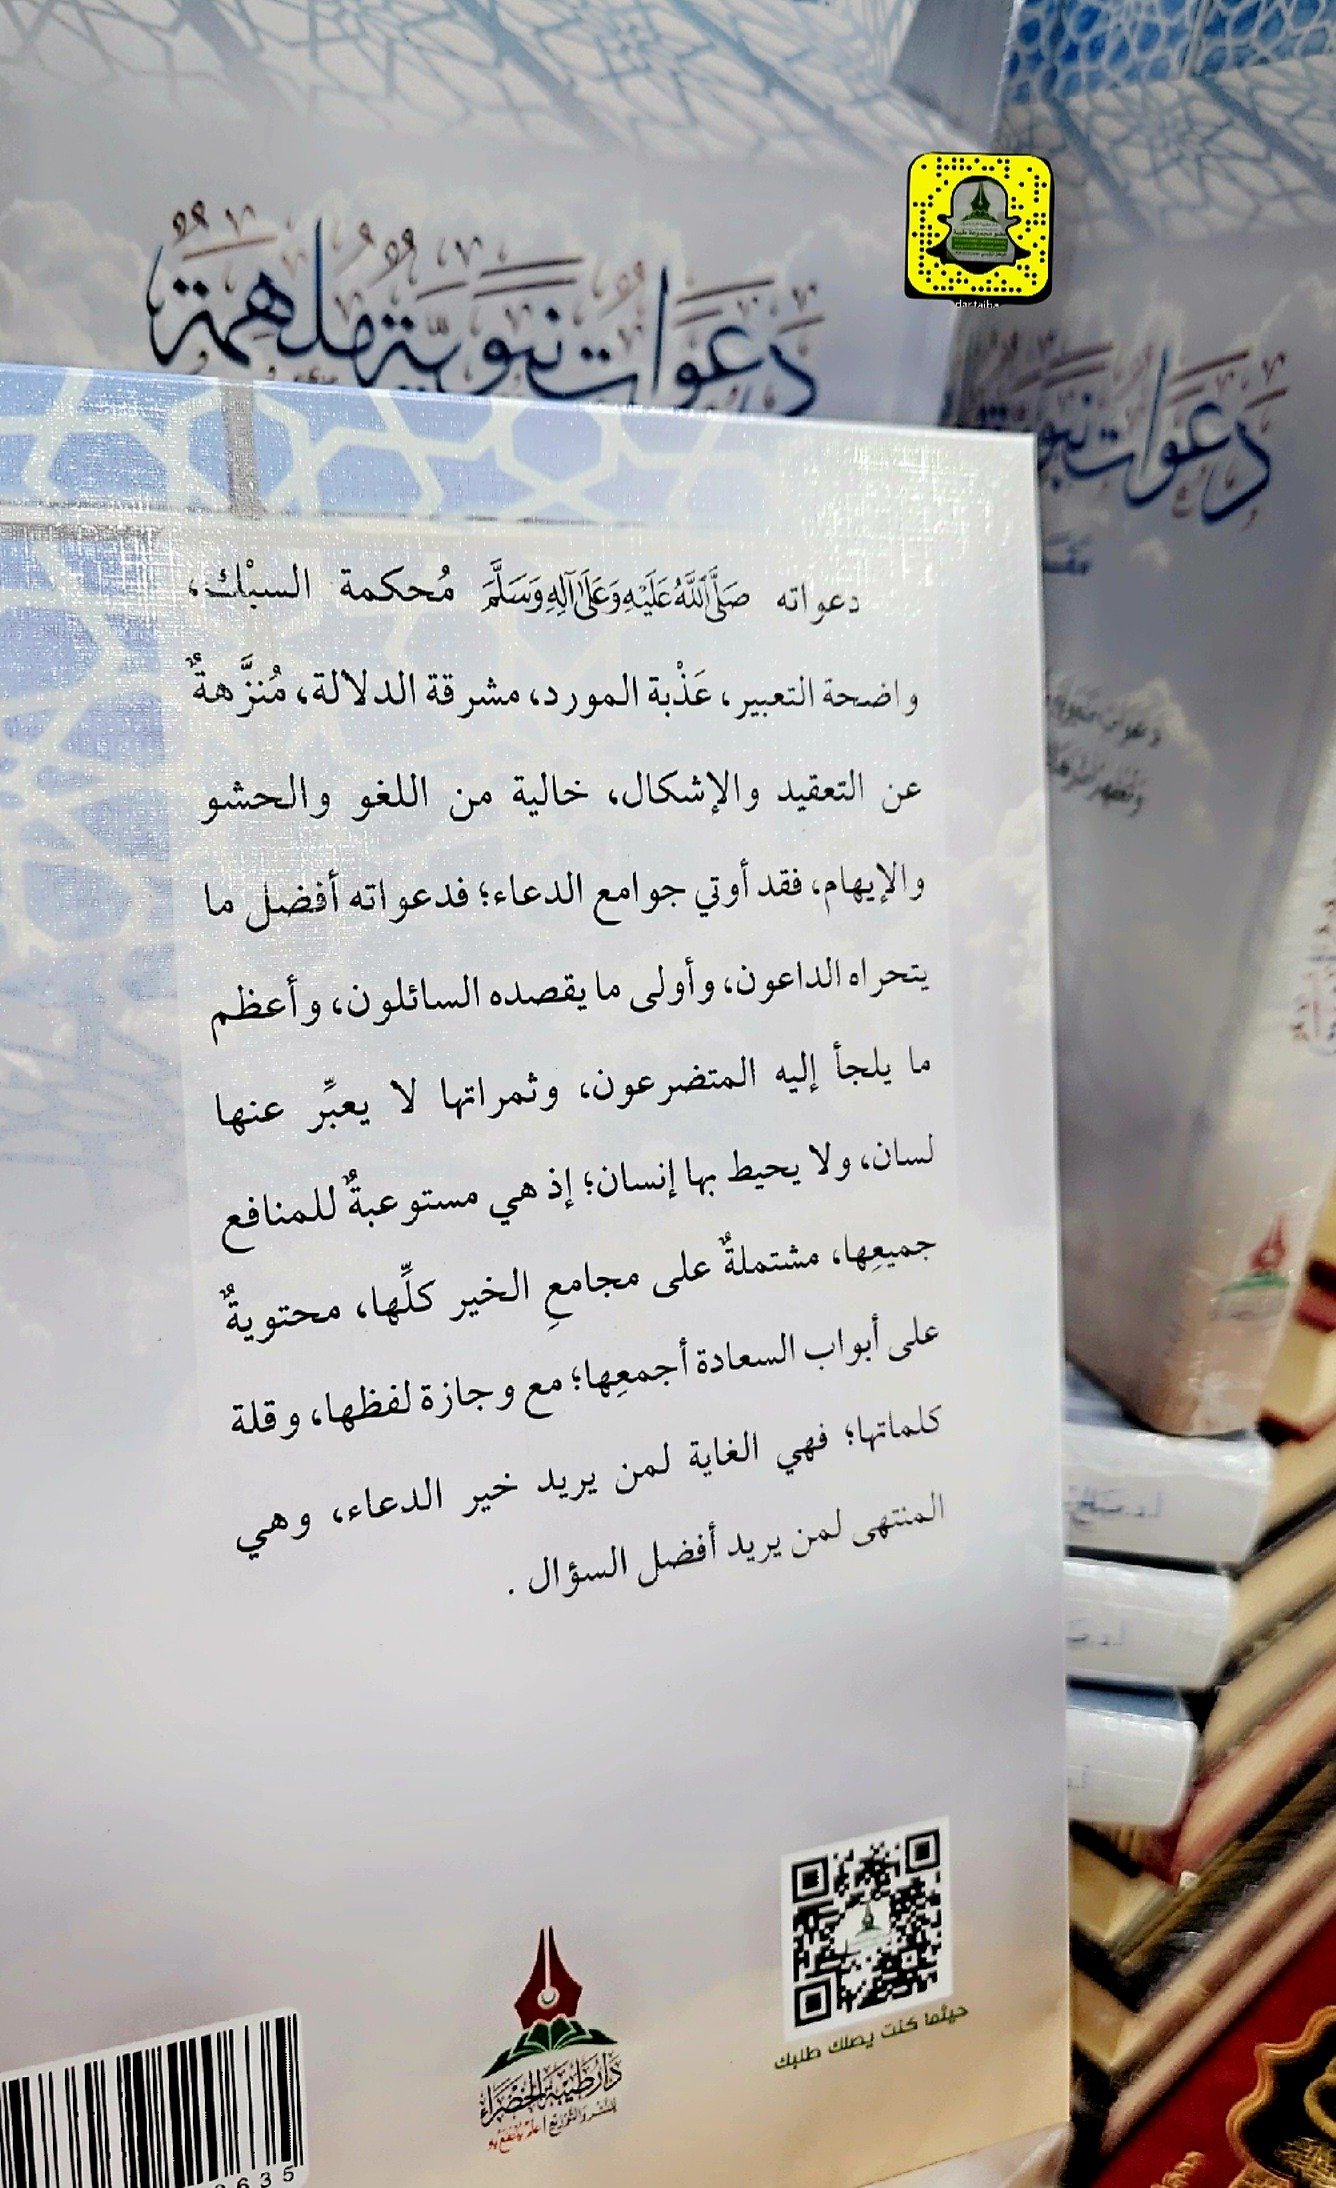 دَعَوَاتٌ نَبَوِيَّةٌ مُلْهِمَةٌ
dartaiba
دَعَوَاتٌ
دعواته صَلَّى ٱللَّهُ عَلَيْهِ وَعَلَىٰ آلِهِ وَسَلَّمَ مُحكمة السبْك،
واضحة التعبير، عَذْبة المورد، مشرقة الدلالة، مُنزَّهةٌ
عن التعقيد والإشكال، خالية من اللغو والحشو
والإيهام، فقد أوتي جوامع الدعاء؛ فدعواته أفضل ما
يتحراه الداعون، وأولى ما يقصده السائلون، وأعظم
ما يلجأ إليه المتضرعون، وثمراتها لا يعبِّر عنها
لسان، ولا يحيط بها إنسان؛ إذ هي مستوعبةٌ للمنافع
جميعِها، مشتملةٌ على مجامعِ الخير كلِّها، محتويةٌ
على أبواب السعادة أجمعِها؛ مع وجازة لفظها، وقلة
كلماتها؛ فهي الغاية لمن يريد خير الدعاء، وهي
المنتهى لمن يريد أفضل السؤال .
حيثما كنت يصلك طلبك
دار طيبة الخضراء
للنشر والتوزيع | علم ينتفع به
635